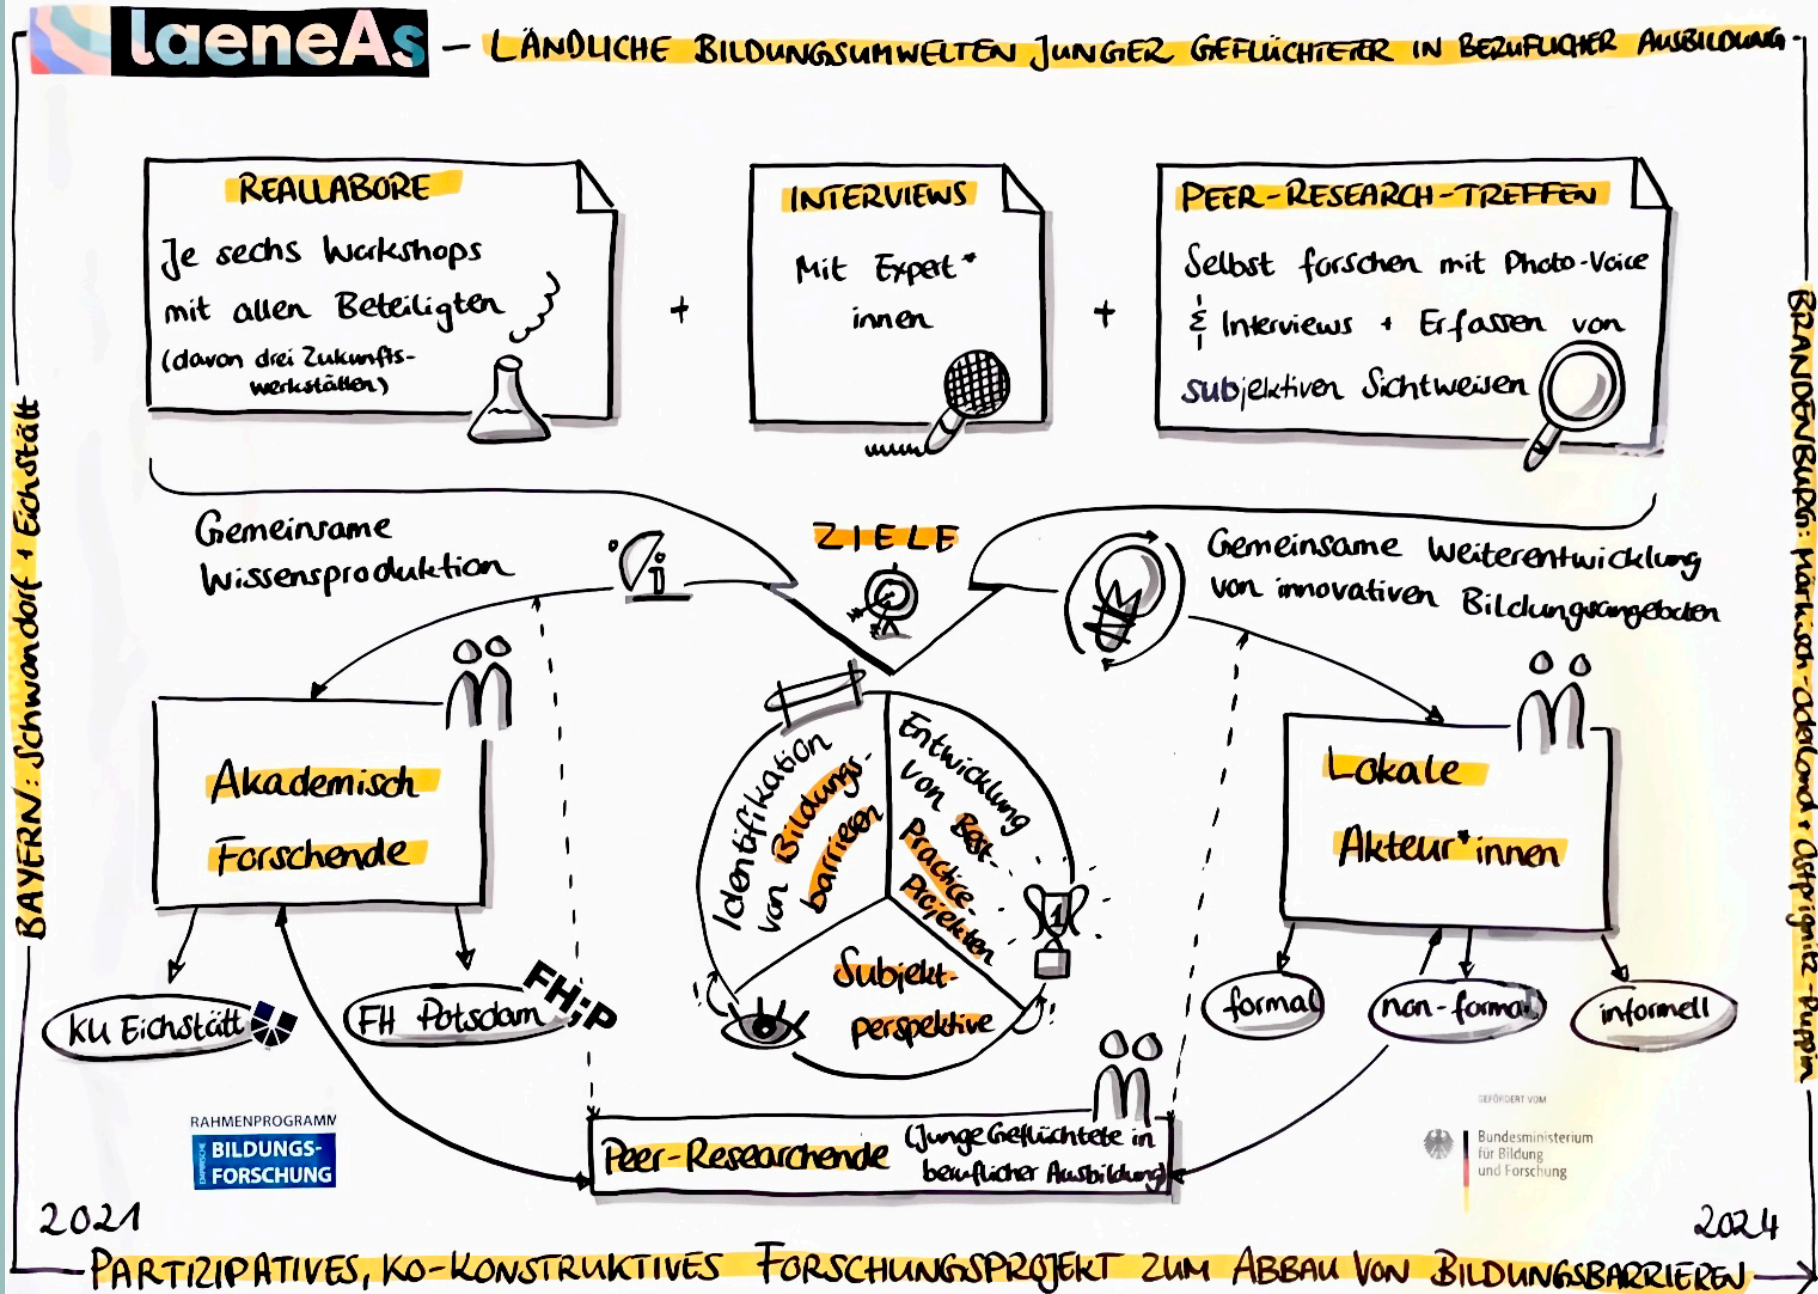 laeneAs – LÄNDLICHE BILDUNGSUMWELTEN JUNGER GEFLÜCHTETER IN BERUFLICHER AUSBILDUNG -
REALLABORE
Je sechs Workshops
mit allen Beteiligten
(davon drei Zukunfts-
werkstätten)
+
INTERVIEWS
Mit Expert*
innen
+
PEER-RESEARCH-TREFFEN
Selbst forschen mit Photo-Voice
& Interviews + Erfassen von
subjektiven Sichtweisen
BAYERN: Schwandorf + Eichstätt
BRANDENBURG: Märkisch-Oderland + Ostprignitz-Ruppin
Gemeinsame
Wissensproduktion
i
ZIELE
Gemeinsame Weiterentwicklung
von innovativen Bildungsangeboten
Akademisch
Forschende
KU Eichstätt
FH Potsdam
FH;P
Identifikation
von Bildungs-
barrieren
Entwicklung
von Best-
Practice-
Projekten
1
Subjekt-
perspektive
!
!
Lokale
Akteur*innen
formal
non-formal
informell
Peer-Researchende (Junge Geflüchtete in
beruflicher Ausbildung)
RAHMENPROGRAMM
EMPIRISCHE
BILDUNGS-
FORSCHUNG
GEFÖRDERT VOM
Bundesministerium
für Bildung
und Forschung
2021
2024
PARTIZIPATIVES, KO-KONSTRUKTIVES FORSCHUNGSPROJEKT ZUM ABBAU VON BILDUNGSBARRIEREN